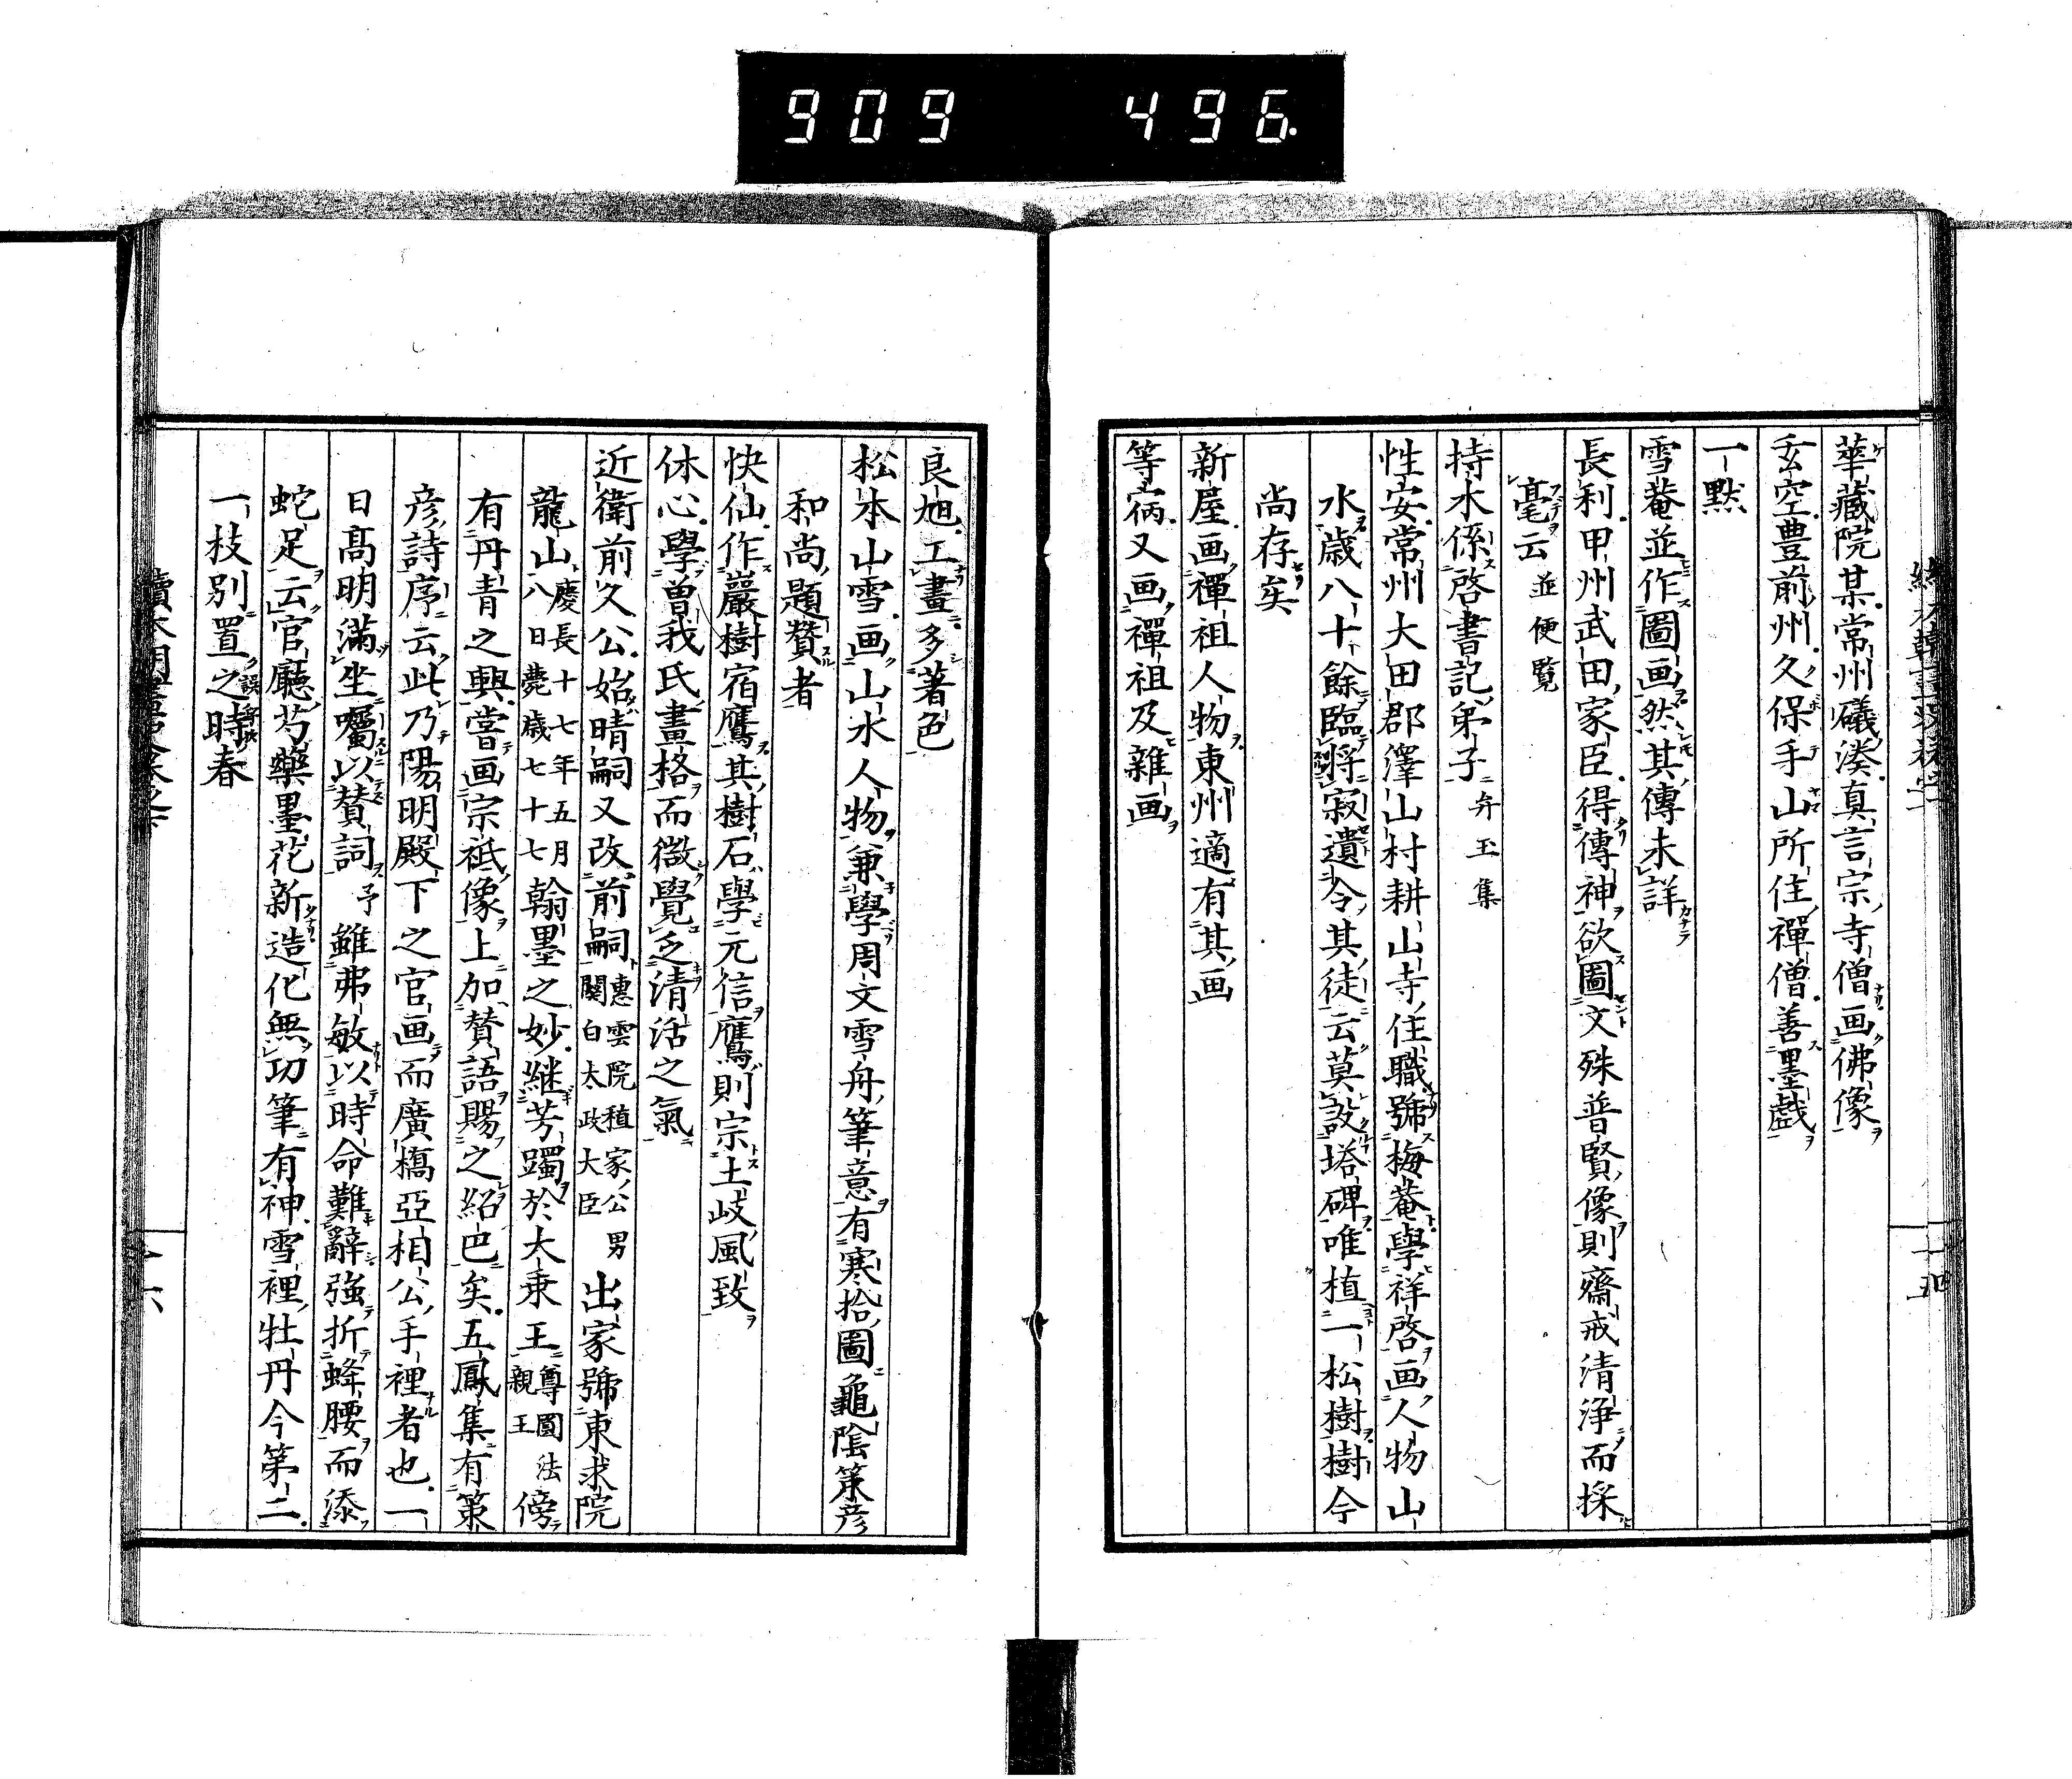 909 496
華藏院某常州礒湊真言宗寺僧画佛像
玄空豊前州久保手山所住禪僧善墨戲
一默
雪菴並作圖画然其傳未詳
長利甲州武田家臣得傳神欲圖文殊普賢像則齋戒清浄而採
毫云並便覧
持水係啓書記弟子弁玉集
性安常州大田郡澤山村耕山寺住職號梅菴學祥啓画人物山
水歳八十餘臨將寂遺令其徒云莫設塔碑唯植一松樹樹今
尚存矣
新屋画禪祖人物東州適有其画
等㾰又画禪祖及雜画
良旭工畫多著色
松本山雪画山水人物兼學周文雪舟筆意有寒拾圖龜陰策彦
和尚題賛者
快仙作巖樹宿鷹其樹石學元信鷹則宗土岐風致
休心學曽我氏畫格而微覺乏清活之氣
近衛前久公始晴嗣又改前嗣惠雲院稙家公男関白太政大臣出家號東求院
龍山慶長十七年五月八日薨歳七十七翰墨之妙継芳躅於大乗王尊圓法親王傍
有丹青之興嘗画宗祇像上加賛語賜之紹巴矣五鳳集有策
彦詩序云此乃陽明殿下之官画而廣橋亞相公手裡者也一
日髙明滿坐囑以賛詞予雖弗敏以時命難辭強折蜂腰而添
蛇足云官廳芍藥墨花新造化無功筆有神雪裡牡丹今第二
一枝別置之時春
續本朝畫史卷之下